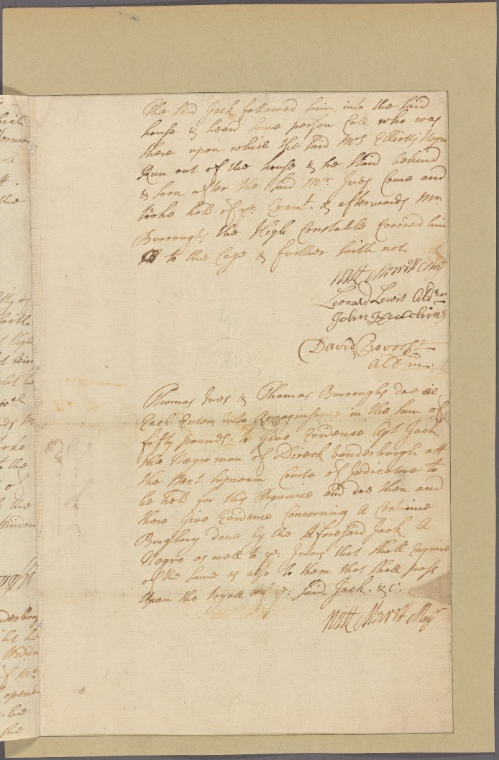 The said Jack followed him into the said
house & heard some person Call who was
there upon which the said Mrs Elliotts Negro
Run out of the house & he staid behind
& soon after the said Mr. Ives Come and
tooke hold of ye Exant. & afterwards Mr.
Burroughs the High Constable Carried him
to the Cage & further saith not.
Will Merritt May
Leonard Lewis Alderm
John Hutchins
David Provoost
Aldm.
Thomas Ives & Thomas Burroughs doe
Each Enter into Recognisance in the sum of
fifty pounds to Give Evidence agt Jack
the Negro man of Direck Vanderburgh att
the Next Supream Courte of Judicature to
be held for this Province and doe then and
there Give Evidence Concerning a
Burglary done by the Aforesaid Jack A
Negro as well to ye: Jurors that shall Enquire
of the same as also To them that shall pass
upon the tryall of ye: said Jack. &c:
Will Merritt Mayr